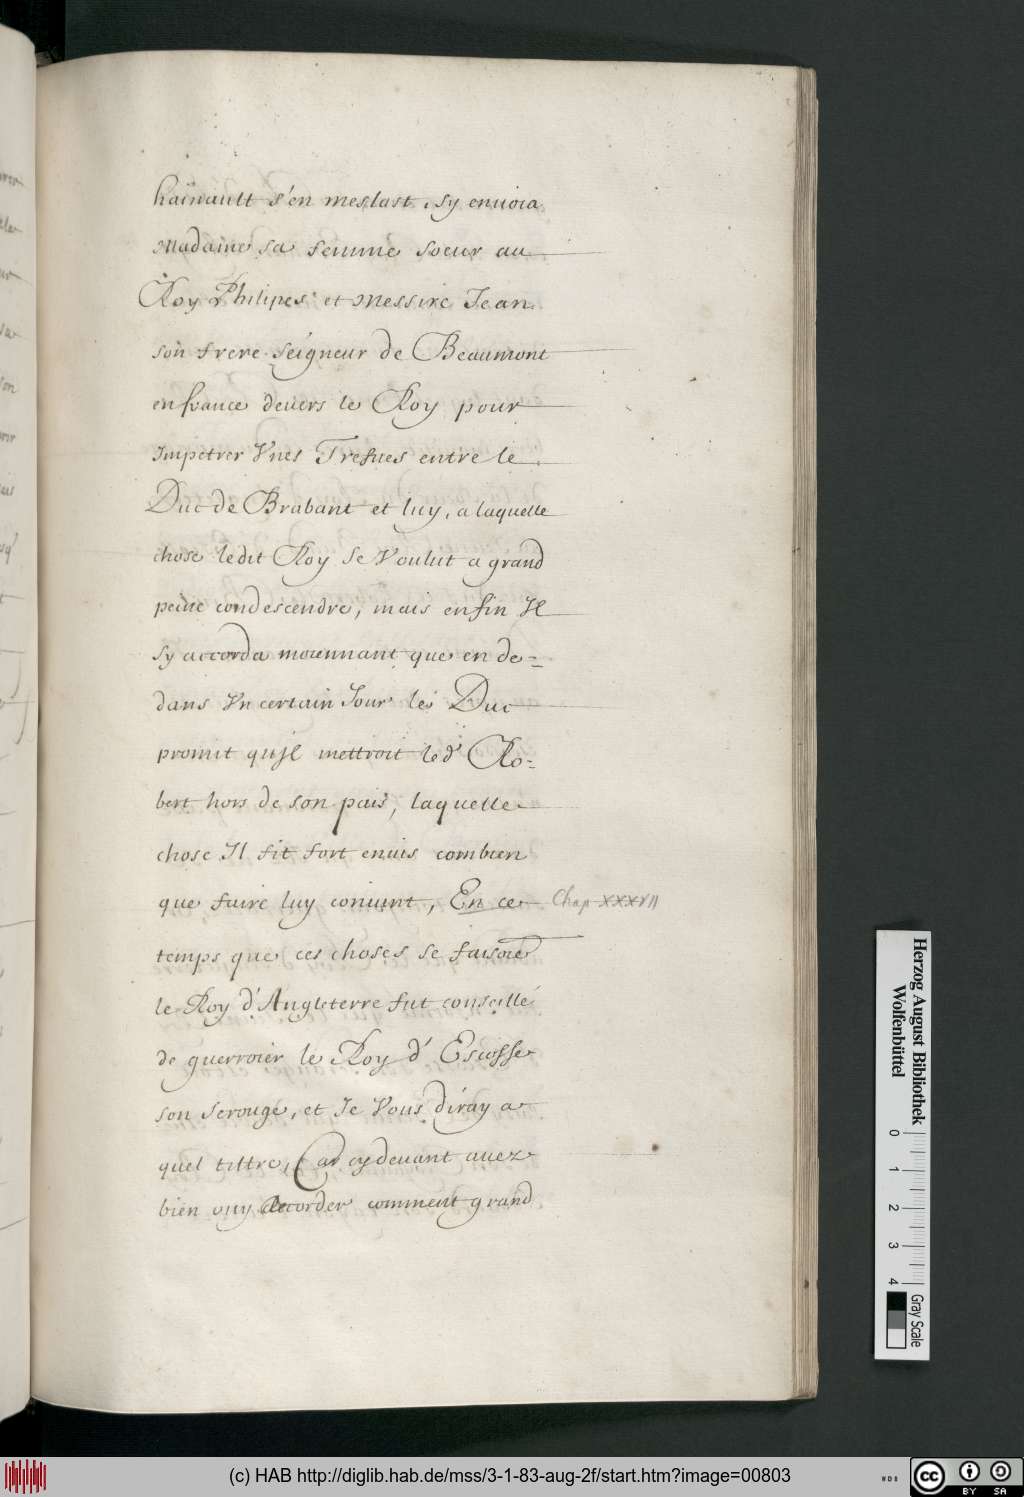 hainault s'en meslast, sy enuoia
Madame sa femme soeur au
Roy Philipes et Messire Jean
son frere seigneur de Beaumont
en france deuers le Roy pour
Impetrer Vnes Tresues entre le
Duc de Brabant et luy, a laquelle
chose ledit Roy se Voulut a grand
peine condescendre, mais enfin Il
sy accorda moiennant que en de=
dans Vn certain Jour le Duc
promit qu'Il mettroit led' Ro=
bert hors de son pais, laquelle
chose Il fit fort enuis combien
que faire luy conuint, En ce
Chap XXXVII
temps que ces choses se faisoie
le Roy d'Angleterre fut conseillé
de guerroier le Roy d' Escosse
son serouge, et Je Vous diray a
quel tiltre, Car cy deuant auez
bien ouy Recorder comment grand
Herzog August Bibliothek
Wolfenbüttel
0 1 2 3 4
Gray Scale
(c) HAB http://diglib.hab.de/mss/3-1-83-aug-2f/start.htm?image=00803
WDB
cc BY SA